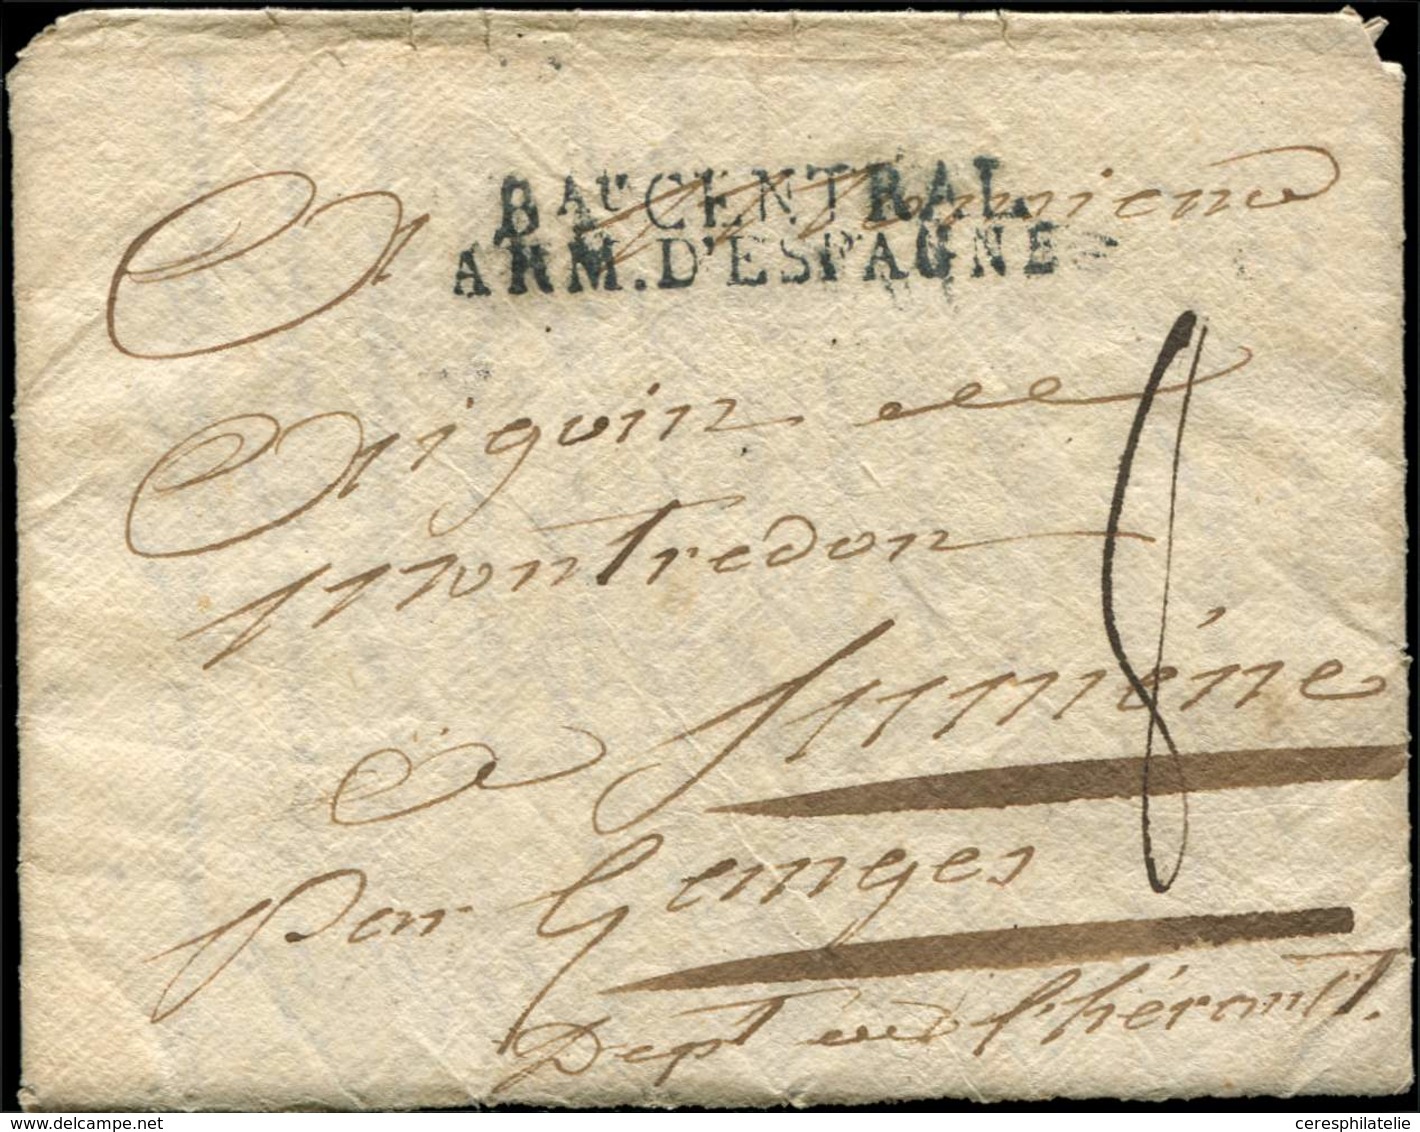 BAU CENTRAL
ARM. D'ESPAGNE
A Monsieur
Aiguin de
Montredon
8
à Sumène
par Genges
Dept de l'hérault.
delcampe.net
ceresphilatelie